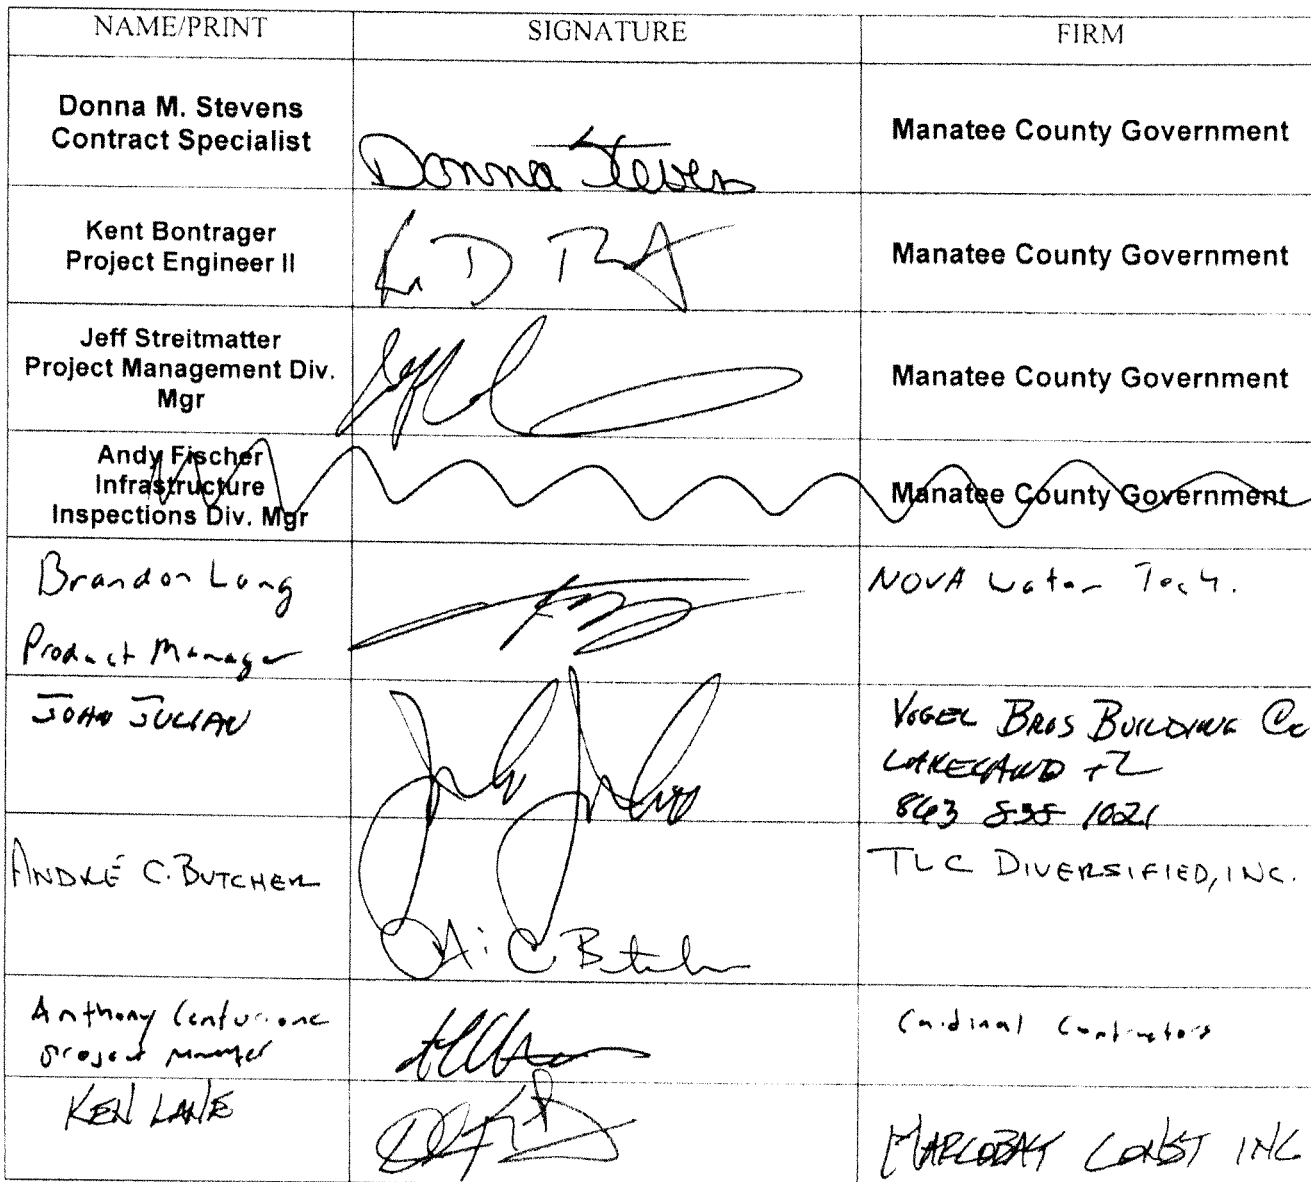 NAME/PRINT SIGNATURE FIRM
Donna M. Stevens
Contract Specialist
Donna Stevens
Manatee County Government
Kent Bontrager
Project Engineer II
Manatee County Government
Jeff Streitmatter
Project Management Div.
Mgr
Manatee County Government
Andy Fischer
Infrastructure
Inspections Div. Mgr
Manatee County Government
Brandon Long
Product Manager
NOVA Water Tech.
JOHN JULIAN
VOGEL BROS BUILDING Co
LAKELAND FL
863 1021
ANDRÉ C. BUTCHER
TLC DIVERSIFIED, INC.
Anthony Centurione
project manager
Cardinal Contractors
KEN LANE
MARCOBAY CONST INC